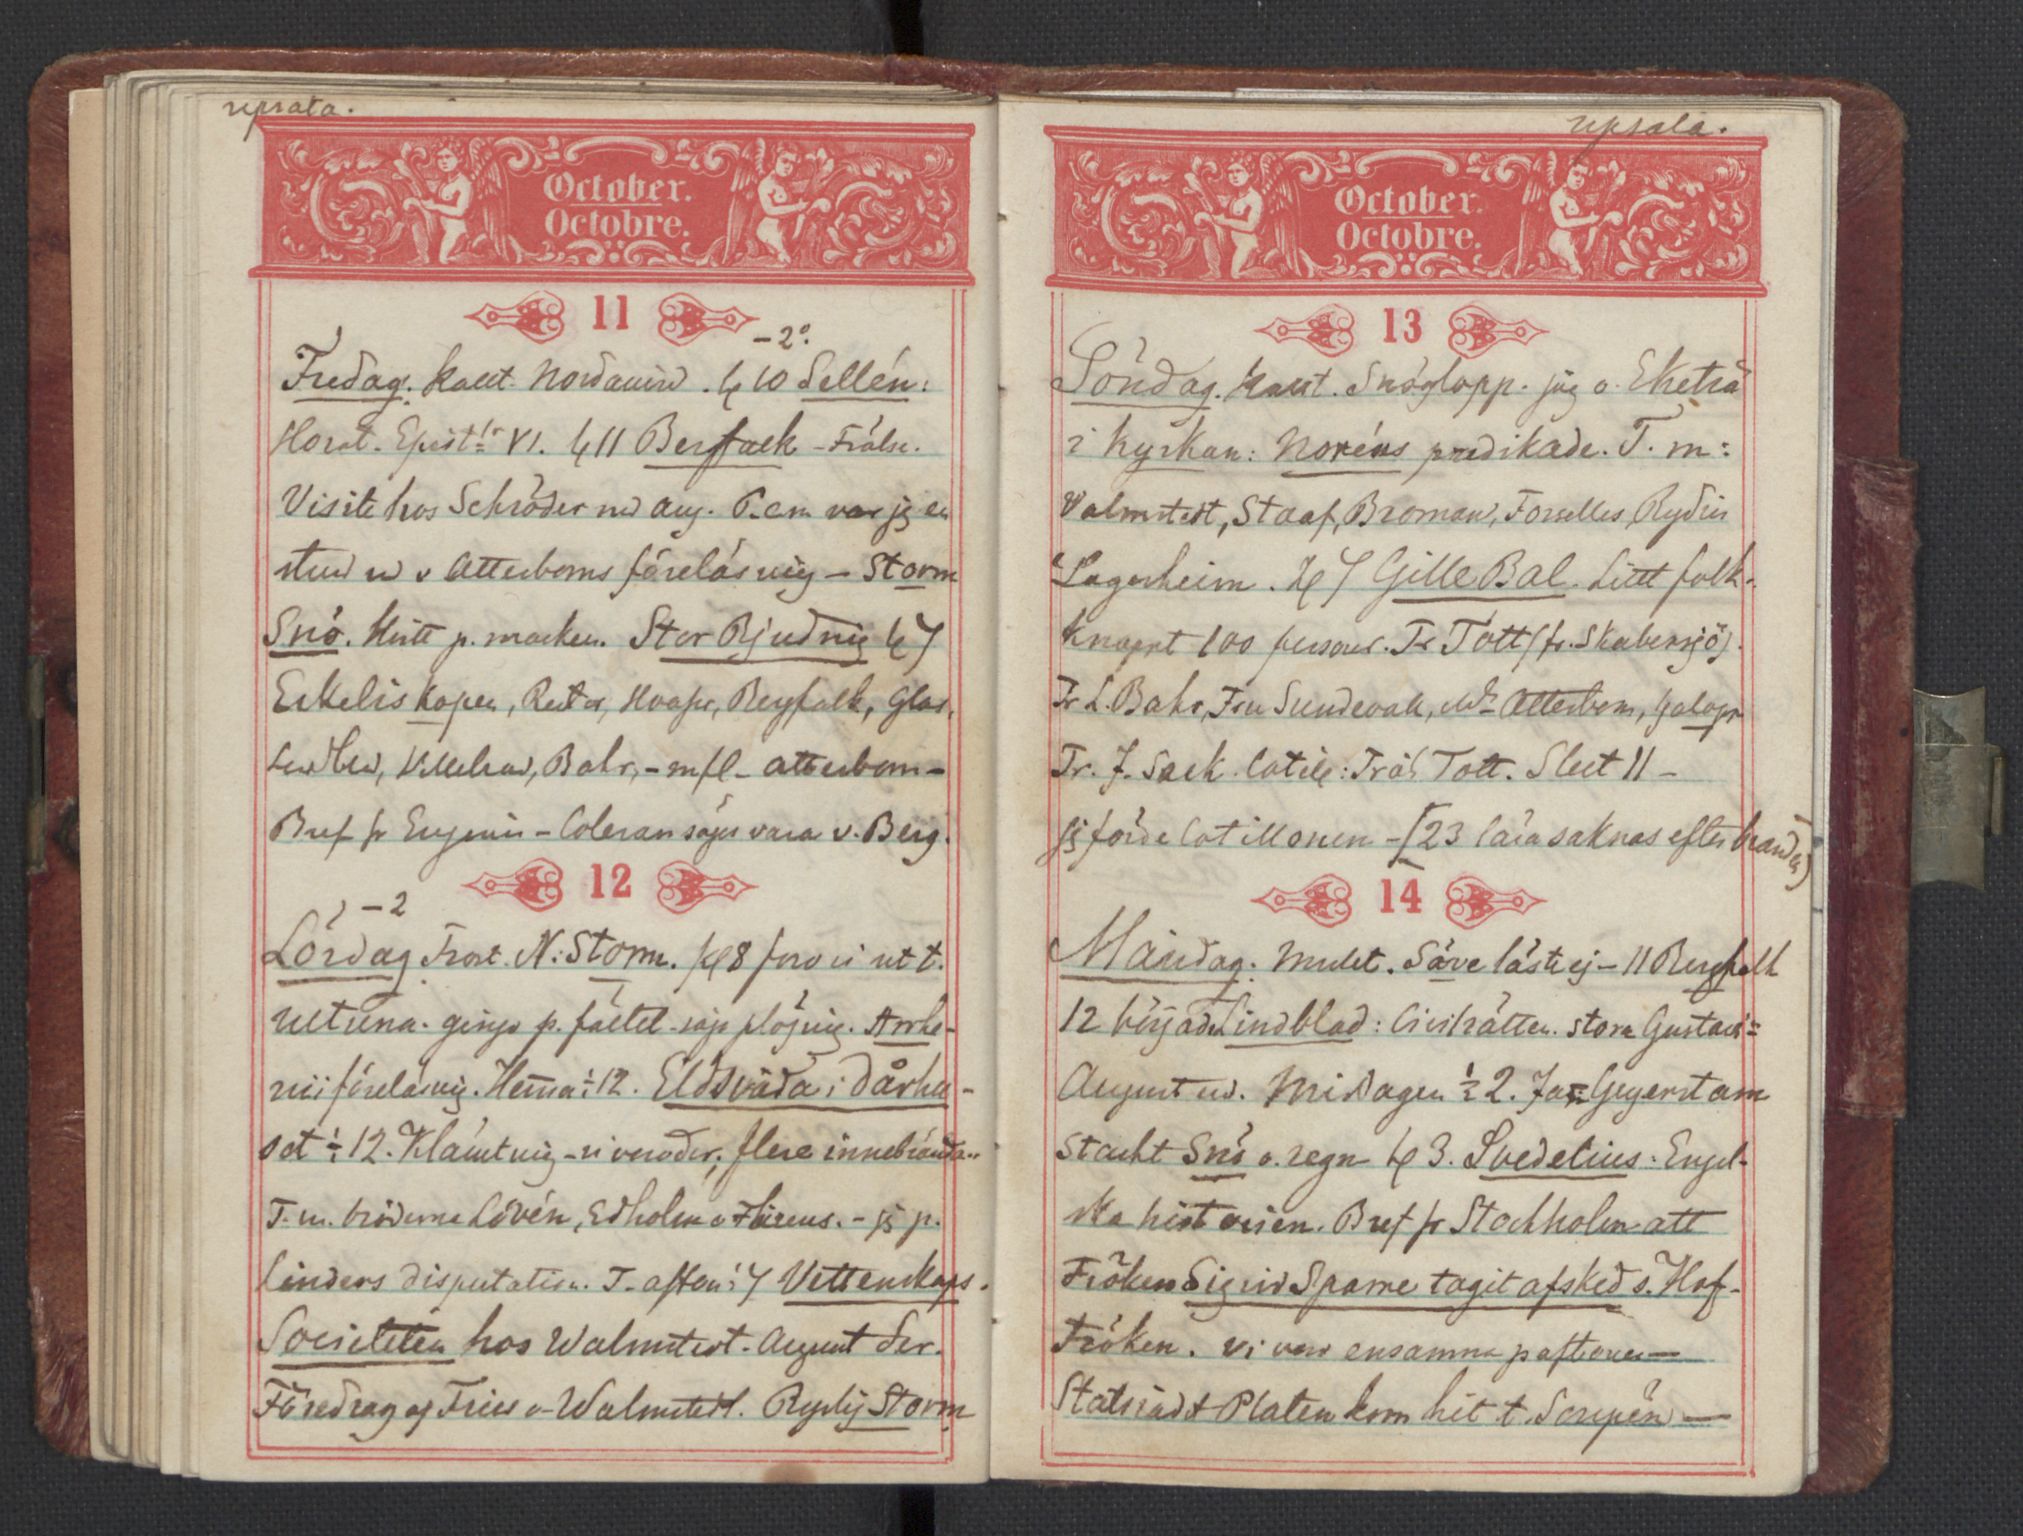 upsala.
October.
Octobre.
11
-2°.
Fredag. kallt. Nordanvind. kl 10 Sellén:
Horat. Epist. VI. kl 11 Bergfalk - Frälse.
Visite hos Schröder md Aug. P. em. var jg en
stund v Atterboms föreläsnig - Storm
Snö. Hvitt p. marken. Stor Bjudnig kl 7
Erkebiskopen, Rector, Bergfalk, Glas,
Bahr, - mfl - Atterbom -
Bref fr Eugenie - Coleran säges vara v. Berg.
12
-2
Lördag Frost. N: Storm. kl 8 foro vi ut t.
Ultuna. gingo p. fältet - sågo plöjnig. Arrhe-
nii föreläsnig. Hemma ½ 12. Eldsvåda i dårhu-
set ½ 12. Klämtnig - vi voro der, flere innebrända..
T. m. bröderna Lovén, Edholm o Thirens. - jg p.
Linders disputation. T. afton: 7 Vettenskaps.
Societeten hos Walmstedt. August der.
Föredrag af Fries o Walmstedt. Ryslig Storm
upsala.
October.
Octobre.
13
Söndag. kallt. Snöglopp. jag o. Eketrä
i kyrkan: Noréns predikade. T. m:
Walmstedt, Staaf, Broman, Forselles, Rydin
Lagerheim. kl 7 Gille Bal. Litet folk.
knappt 100 personer. Fr Tott (fr. Skabersjö).
Fr L. Bahr, Fru Sundevall, Md Atterbom, galopp
Fr. J. Sack. Cotill: Frök Tott. Slut 11 -
jg förde Cotillonen - [23 lära saknas efter branden]
14
Måndag. Mulet. Säve läste ej - 11 Bergfalk
12 började Lindblad: Civilrätten. stora Gustavi=
August md. Middagen ½ 2. Gegerstam
starkt Snö o. regn kl 3. Svedelius: Engel-
ska historien. Bref fr Stockholm att
Fröken Sigrid Sparre tagit afsked s. Hof-
fröken. vi voro ensamna p aftonen -
Statsrådet Platen kom hit t. -